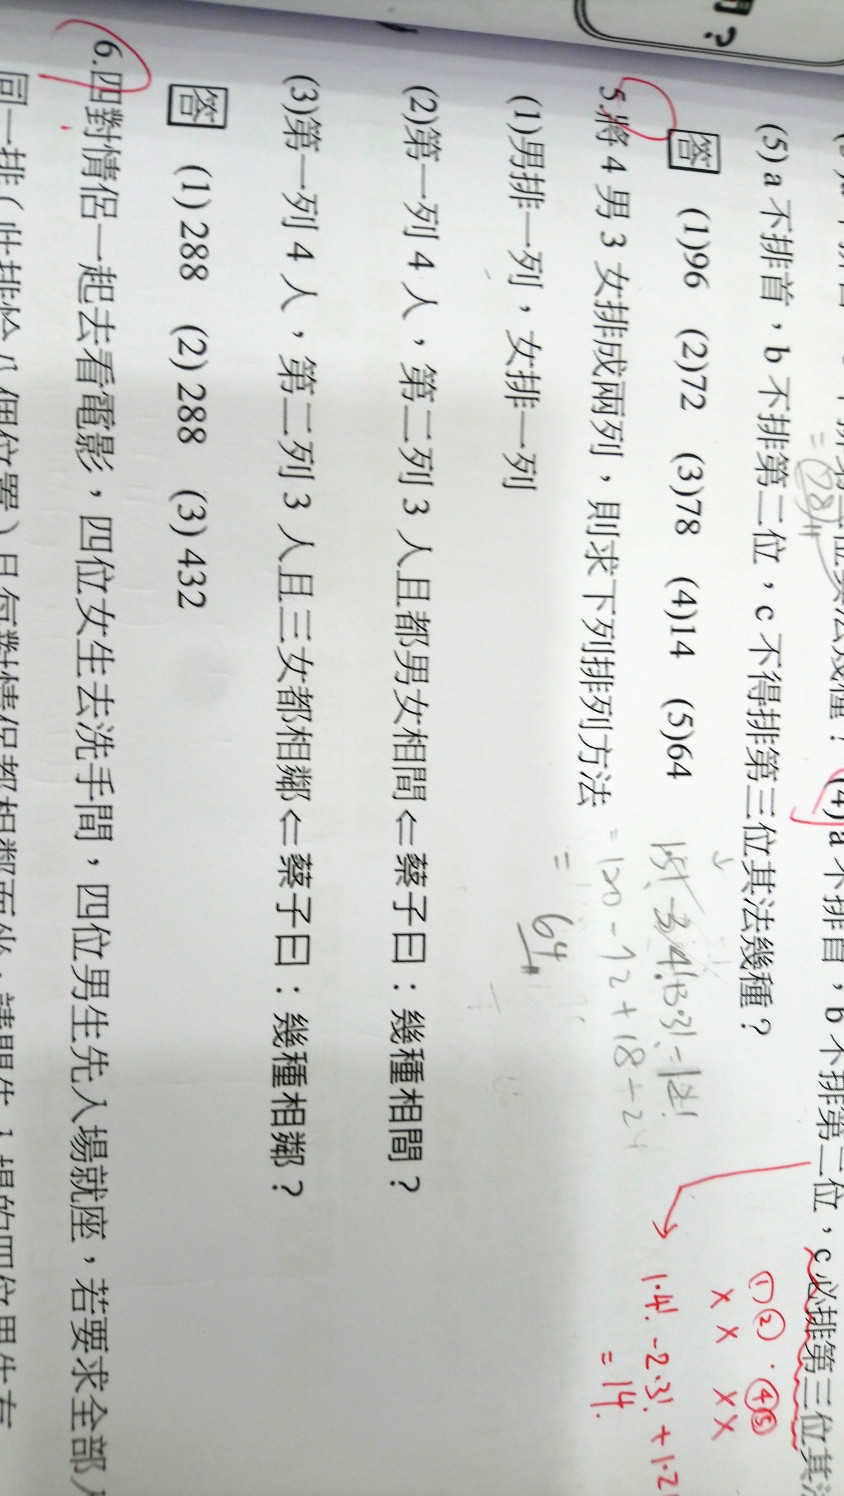 (4) a 不排首，b 不排第二位，c 必排第三位其
= 78
(5) a 不排首，b 不排第二位，c 不得排第三位其法幾種？
① ② · ④ ⑤
× × × ×
答 (1)96 (2)72 (3)78 (4)14 (5)64
1·4! - 2·3! + 1·2!
= 14.
5.將 4 男 3 女排成兩列，則求下列排列方法
= 120 - 72 + 18 - 2
= 64
(1)男排一列，女排一列
(2)第一列 4 人，第二列 3 人且都男女相間⇐蔡子曰：幾種相間？
(3)第一列 4 人，第二列 3 人且三女都相鄰⇐蔡子曰：幾種相鄰？
答 (1) 288 (2) 288 (3) 432
6.四對情侶一起去看電影，四位女生去洗手間，四位男生先入場就座，若要求全部
同一排（此排恰八個位置）且每對情侶都相鄰而坐，請問先入場的四位男生有